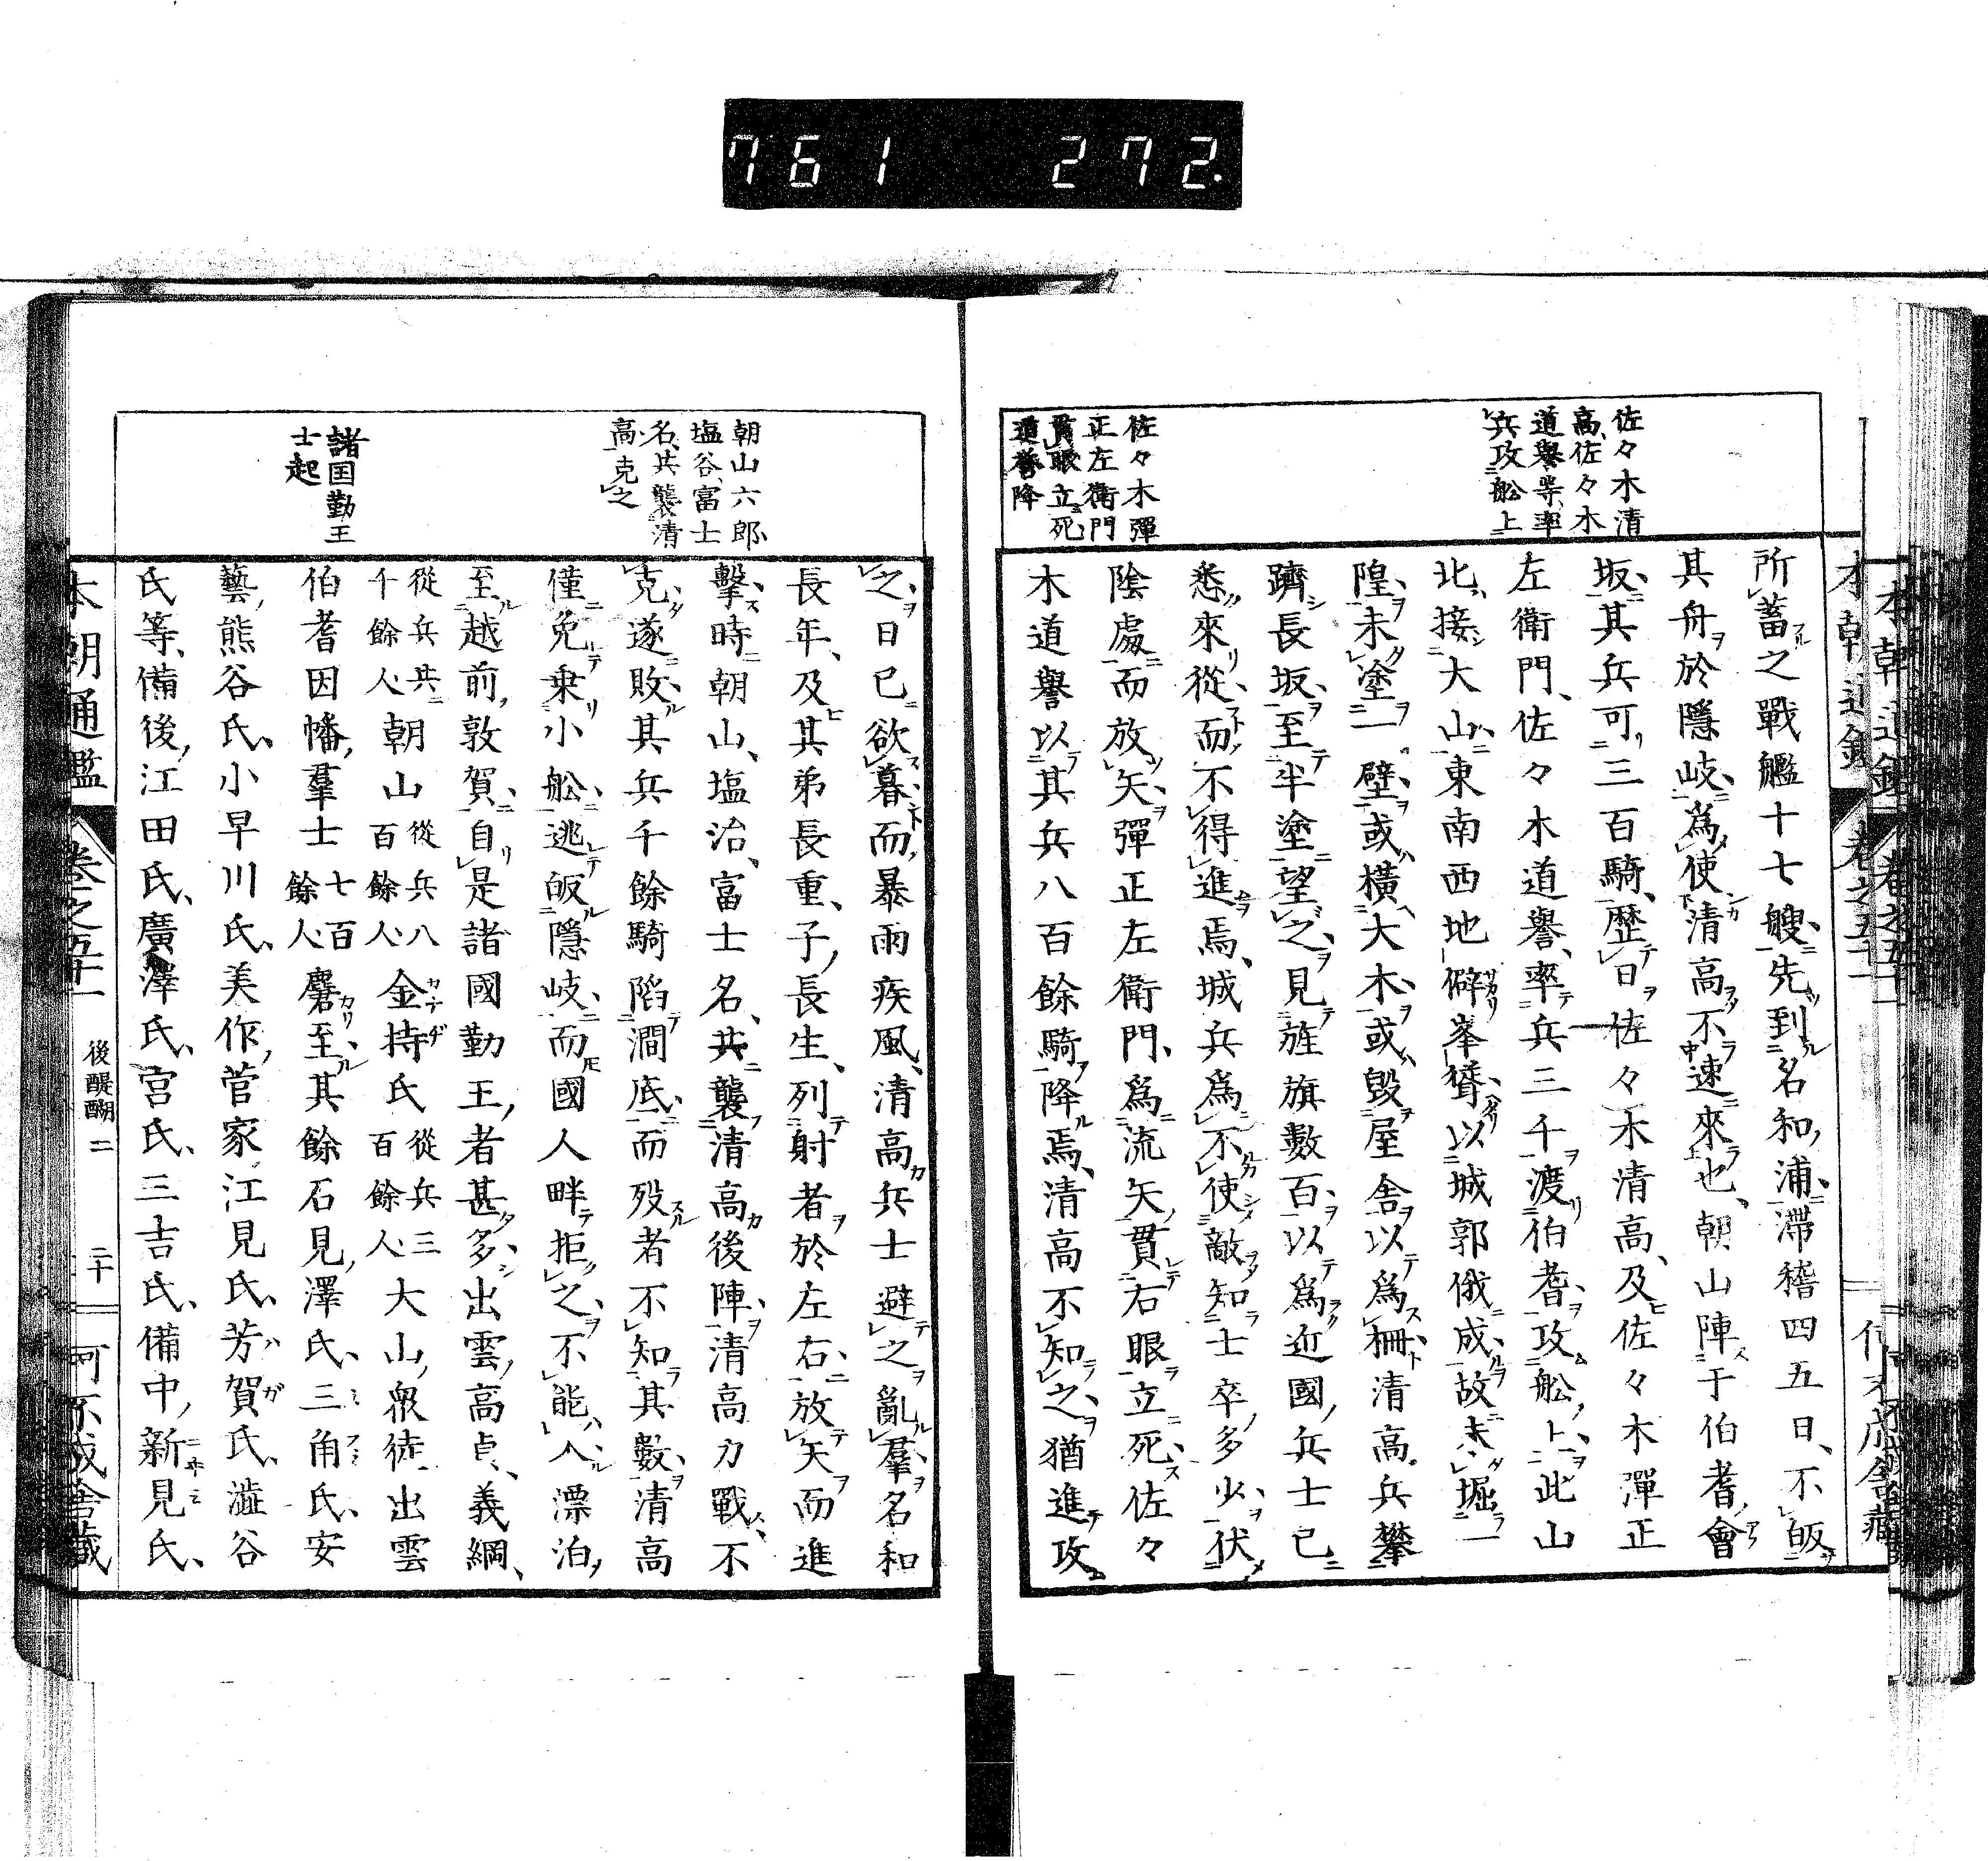 761 272.
佐々木清
高、佐々木
道譽等、率
兵攻船上
佐々木彈
正左衛門
貫眼立死
道譽降
所蓄之戰艦十七艘、先到名和浦、滯稽四五日、不皈
其舟於隱岐、爲使清高不速來也、朝山陣于伯耆、會
坂、其兵可三百騎、歷日佐々木清高、及佐々木彈正
左衛門、佐々木道譽、率兵三千渡伯耆、攻船上、此山
北、接大山、東南西地僻峯聳、以城郭俄成、故未堀一
隍、未塗一壁、或橫大木、或毀屋舍、以爲柵、清高兵攀
躋長坂、至半塗望之、見旌旗數百、以爲近國兵士已
悉來從、而不得進焉、城兵爲不使敵知士卒多少、伏
陰處而放矢、彈正左衛門、爲流矢、貫右眼立死、佐々
木道譽以其兵八百餘騎降焉、清高不知之、猶進攻
朝山六郎、
塩谷、富士
名、共襲清
高、克之
諸国勤王
士起
之、日已欲暮而、暴雨疾風、清高兵士避之亂羣、名和
長年、及其弟長重、子長生、列射者於左右、放矢而進
擊、時朝山、塩治、富士名、共襲清高後陣、清高力戰、不
克、遂敗、其兵千餘騎陷澗底、而歿者不知其數、清高
僅免、乗小船、逃皈隱岐、而國人畔拒之、不能入、漂泊
至越前敦賀、自是諸國勤王者甚多、出雲高貞、義綱、
從兵共千餘人、朝山從兵八百餘人、金持氏從兵三百餘人、大山衆徒出雲
伯耆因幡羣士七百餘人、麕至、其餘石見、澤氏、三角氏、安
藝、熊谷氏、小早川氏、美作、菅家、江見氏、芳賀氏、澁谷
氏等、備後、江田氏、廣澤氏、宮氏、三吉氏、備中、新見氏、
本朝通鑑 卷之五十一 後醍醐二 三十